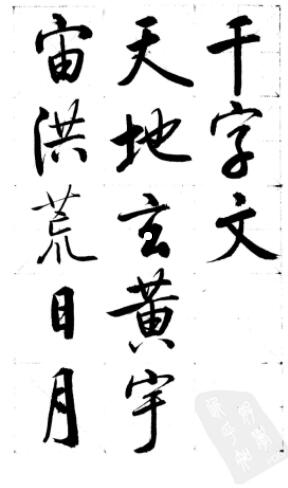 千字文
天地玄黄宇
宙洪荒日月